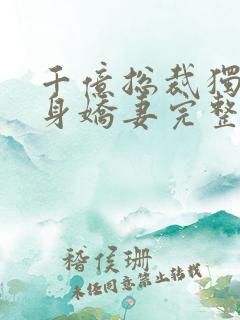 千億總裁獨
身嬌妻完整
稽侯珊
未經同意禁止轉載